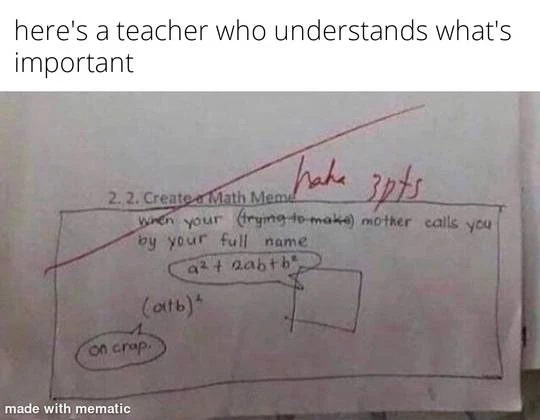 here's a teacher who understands what's
important
haha 3pts
2. 2. Create a Math Meme
when your (trying to make) mother calls you
by your full name
a² + 2ab+b²
(a+b)²
oh crap.
made with mematic